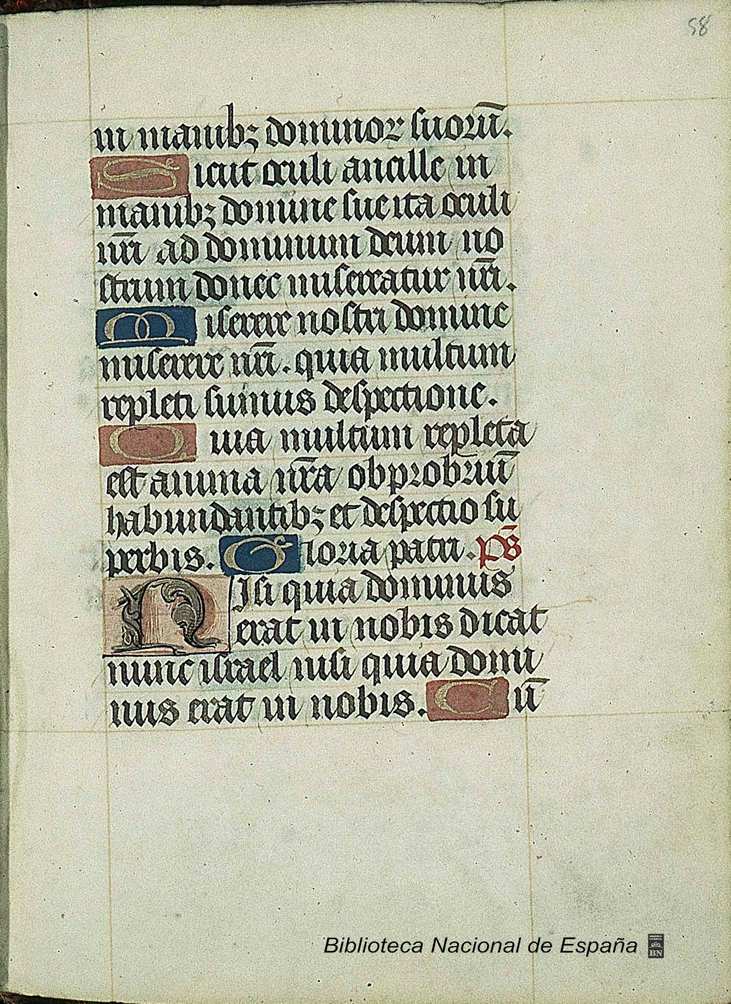 58
in manibꝫ dominoꝝ suoru̅.
Sicut oculi ancille in
manibꝫ domine sue ita oculi
nr̅i ad dominum deum no
strum donec misereatur nr̅i.
Miserere nostri domine
miserere nr̅i. quia multum
repleti sumus despectione.
Quia multum repleta
est anima nr̅a obprobriu̅
habundantibꝫ et despectio su
perbis. Gloria patri. ps̅
Nisi quia dominus
erat in nobis dicat
nunc israel nisi quia domi
nus erat in nobis. Cu̅
Biblioteca Nacional de España
BN